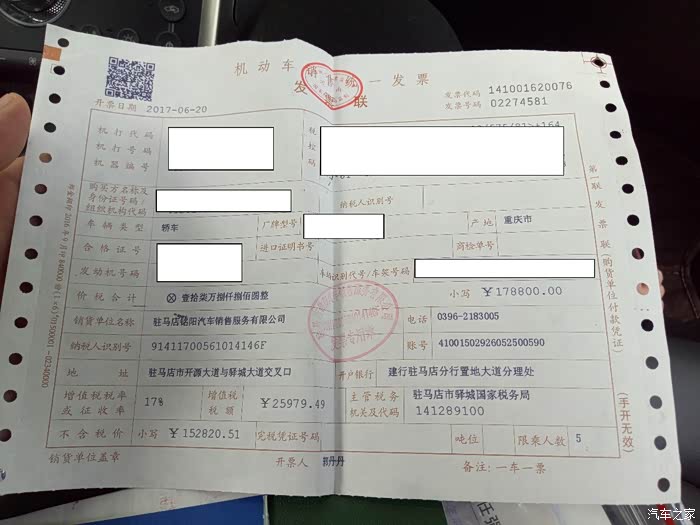 机动车销售统一发票
发票联
开票日期 2017-06-20
发票代码 141001620076
发票号码 02274581
机打代码
机打号码
机器编号
税控码
购买方名称及
身份证号码/
组织机构代码
纳税人识别号
车辆类型 轿车 厂牌型号 产地 重庆市
合格证号 进口证明书号 商检单号
发动机号码 车辆识别代号/车架号码
价税合计 ⊗壹拾柒万捌仟捌佰圆整 小写 ￥178800.00
销货单位名称 驻马店 汽车销售服务有限公司 电话 0396-2183005
纳税人识别号 91411700561014146F 账号 41001502926052500590
地址 驻马店市开源大道与驿城大道交叉口 开户银行 建行驻马店分行置地大道分理处
增值税税率
或征收率 17% 增值税
税额 ￥25979.49 主管税务
机关及代码 驻马店市驿城国家税务局
141289100
不含税价 小写 ￥152820.51 完税凭证号码 吨位 限乘人数 5
销货单位盖章 开票人 郭丹丹 备注:一车一票
第一联 发票联(购货单位付款凭证)
(手开无效)
汽车之家